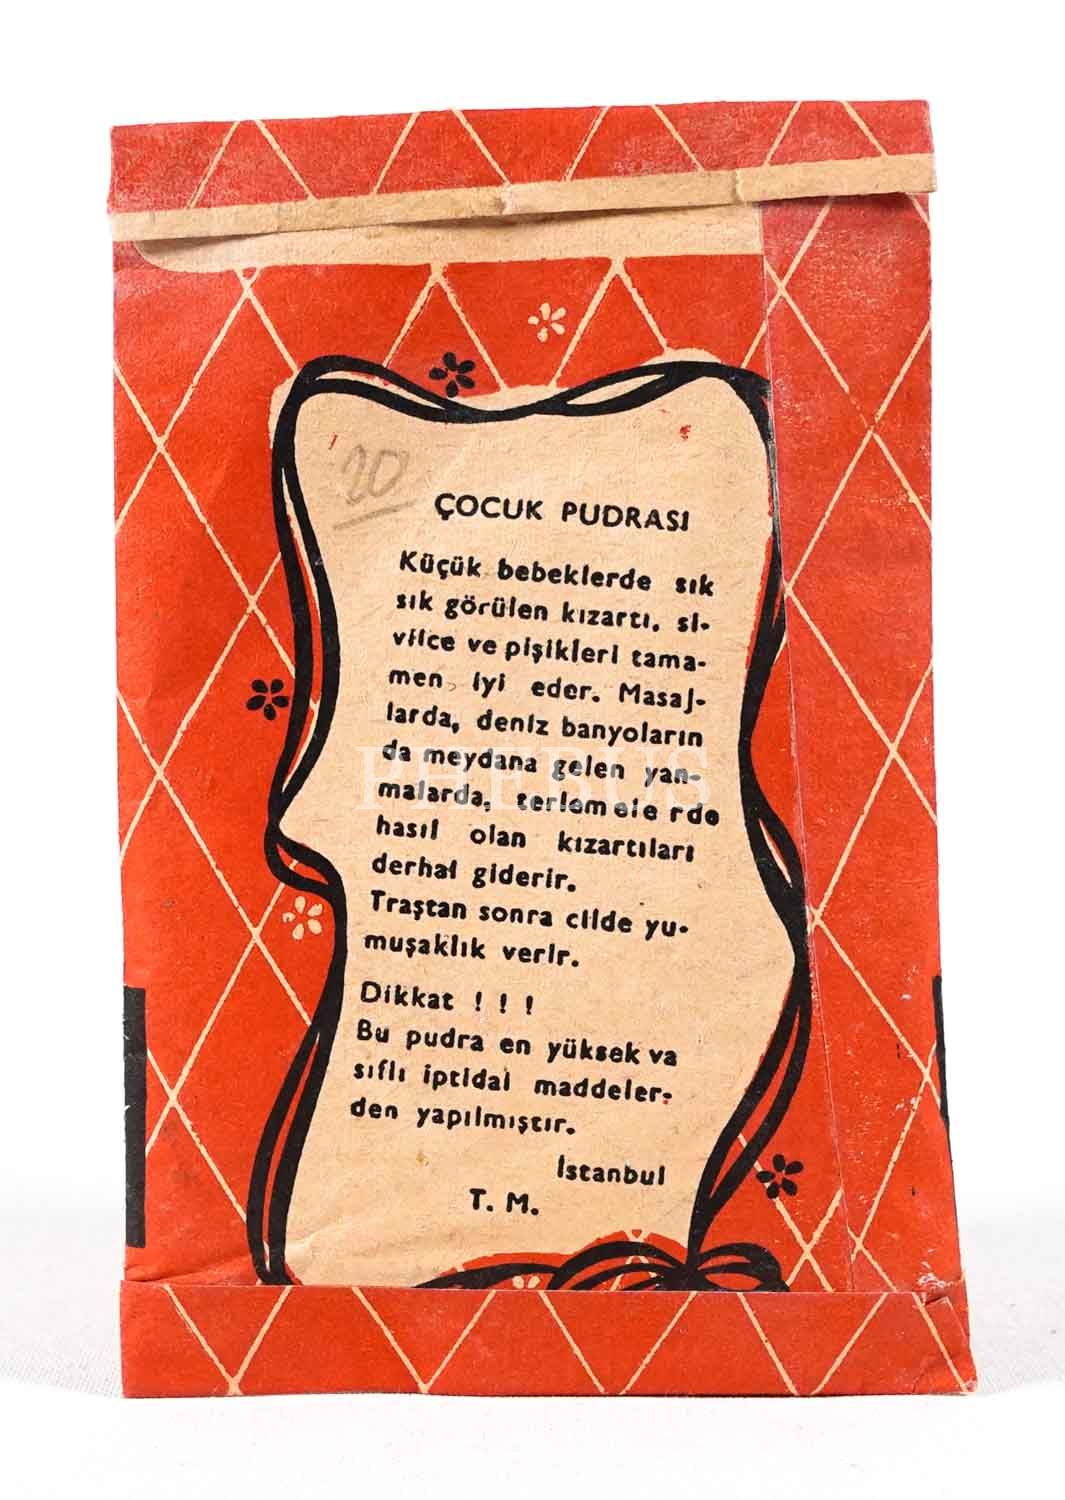 20
ÇOCUK PUDRASI
Küçük bebeklerde sık
sık görülen kızartı, si-
vilce ve pişikleri tama-
men iyi eder. Masaj-
larda, deniz banyoların
da meydana gelen yan-
malarda, terlemelerde
hasıl olan kızartıları
derhal giderir.
Traştan sonra cilde yu-
muşaklık verir.
Dikkat ! ! !
Bu pudra en yüksek va
sıflı iptidai maddeler-
den yapılmıştır.
İstanbul
T. M.
PHEBUS